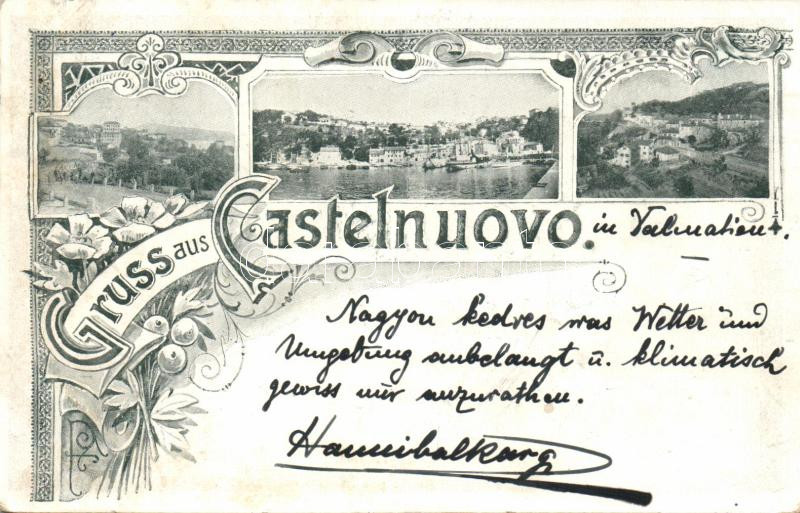 Gruss aus Castelnuovo. in Dalmatien.
Nagyon kedves was Wetter und
Umgebung anbelangt u. klimatisch
gewiss nur anzurathen.